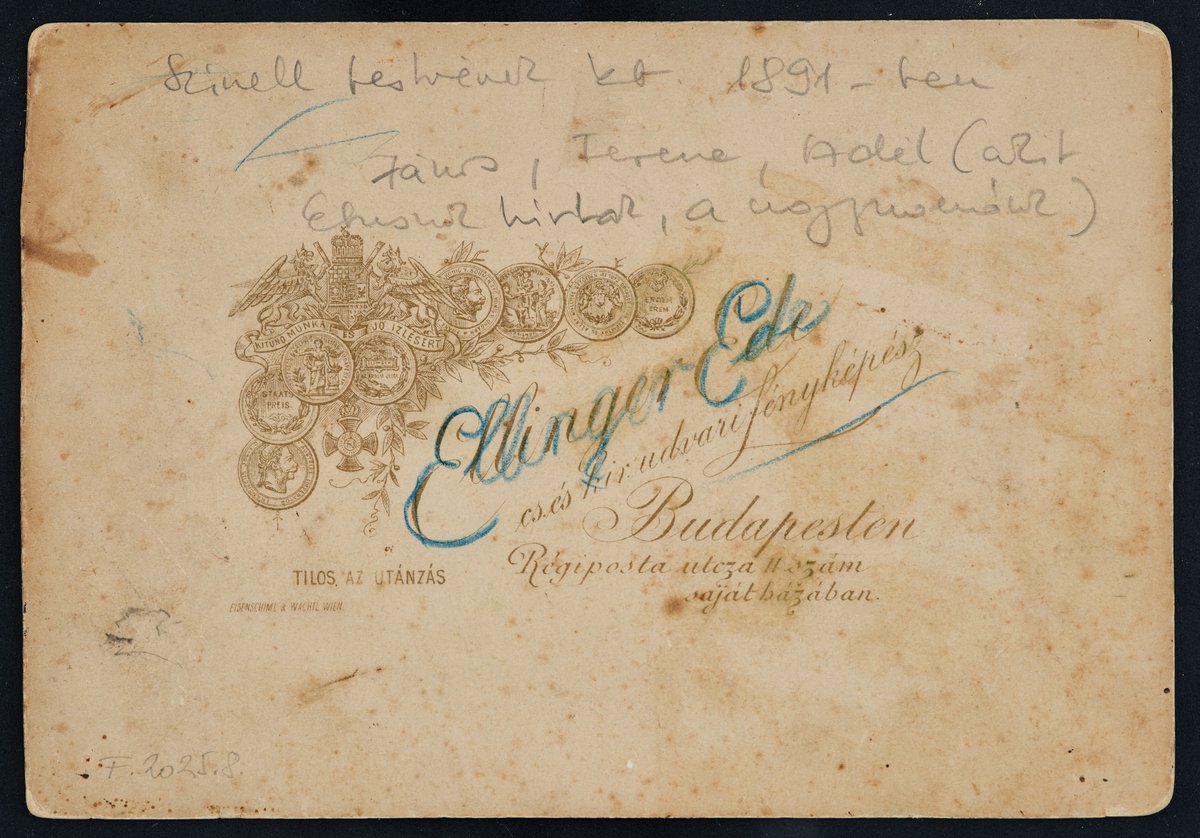 Szinell testvérek kb. 1891-ben
János, Terene, Adél (akit
hívtak, a nagymamánk)
KITÜNŐ MUNKA ÉS JÓ IZLÉSÉRT
STAATS
PREIS
ÉRDEM
ÉREM
Ellinger Ede
cs. és kir. udvari fényképész
Budapesten
Régiposta utcza 11 szám
saját házában.
TILOS, AZ UTÁNZÁS
EISENSCHIML & WACHTL, WIEN.
F. 2025.8.